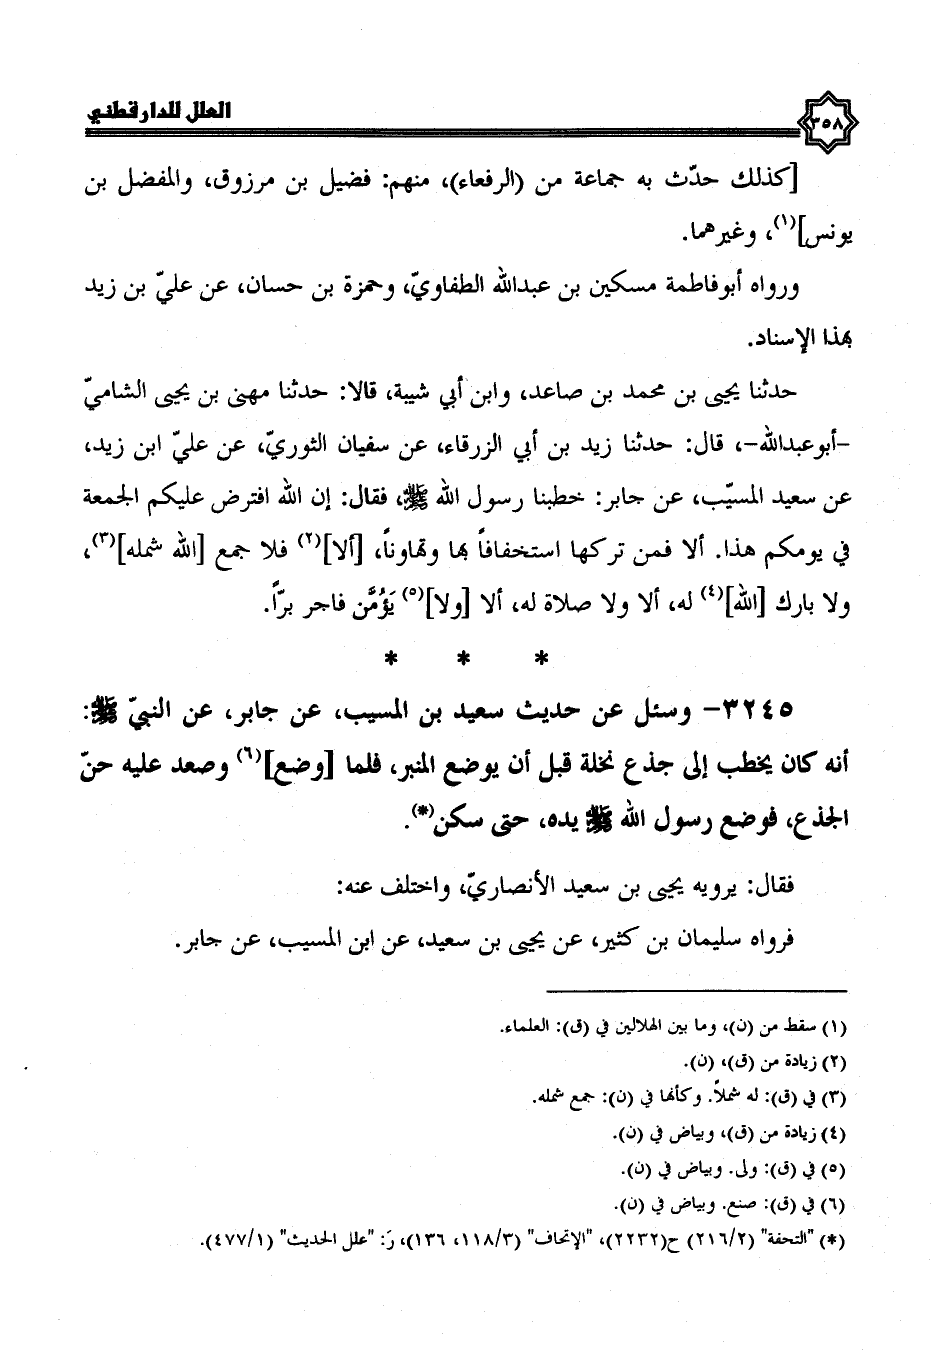 العلل للدارقطني
٣٥٨
[كذلك حدّث به جماعة من (الرفعاء)، منهم: فضيل بن مرزوق، والمفضل بن
يونس](١)، وغيرهما.
ورواه أبوفاطمة مسكين بن عبدالله الطفاويّ، وحمزة بن حسان، عن عليّ بن زيد
بهذا الإسناد.
حدثنا يحيى بن محمد بن صاعد، وابن أبي شيبة، قالا: حدثنا مهنى بن يحيى الشاميّ
-أبوعبدالله-، قال: حدثنا زيد بن أبي الزرقاء، عن سفيان الثوريّ، عن عليّ ابن زيد،
عن سعيد المسيّب، عن جابر: خطبنا رسول الله ﷺ، فقال: إن الله افترض عليكم الجمعة
في يومكم هذا. ألا فمن تركها استخفافاً بها وتهاوناً، [ألا](٢) فلا جمع [الله شمله](٣)،
ولا بارك [الله](٤) له، ألا ولا صلاة له، ألا [ولا](٥) يَؤُمَّن فاجر برّاً.
* * *
٣٢٤٥- وسئل عن حديث سعيد بن المسيب، عن جابر، عن النبيّ ﷺ:
أنه كان يخطب إلى جذع نخلة قبل أن يوضع المنبر، فلما [وضع](٦) وصعد عليه حنّ
الجذع، فوضع رسول الله ﷺ يده، حتى سكن(*).
فقال: يرويه يحيى بن سعيد الأنصاريّ، واختلف عنه:
فرواه سليمان بن كثير، عن يحيى بن سعيد، عن ابن المسيب، عن جابر.
(١) سقط من (ن)، وما بين الهلالين في (ق): العلماء.
(٢) زيادة من (ق)، (ن).
(٣) في (ق): له شملاً. وكأنها في (ن): جمع شمله.
(٤) زيادة من (ق)، وبياض في (ن).
(٥) في (ق): ولى. وبياض في (ن).
(٦) في (ق): صنع. وبياض في (ن).
(*) "التحفة" (٢١٦/٢) ح(٢٢٣٢)، "الإتحاف" (١١٨/٣، ١٣٦)، رَ: "علل الحديث" (٤٧٧/١).